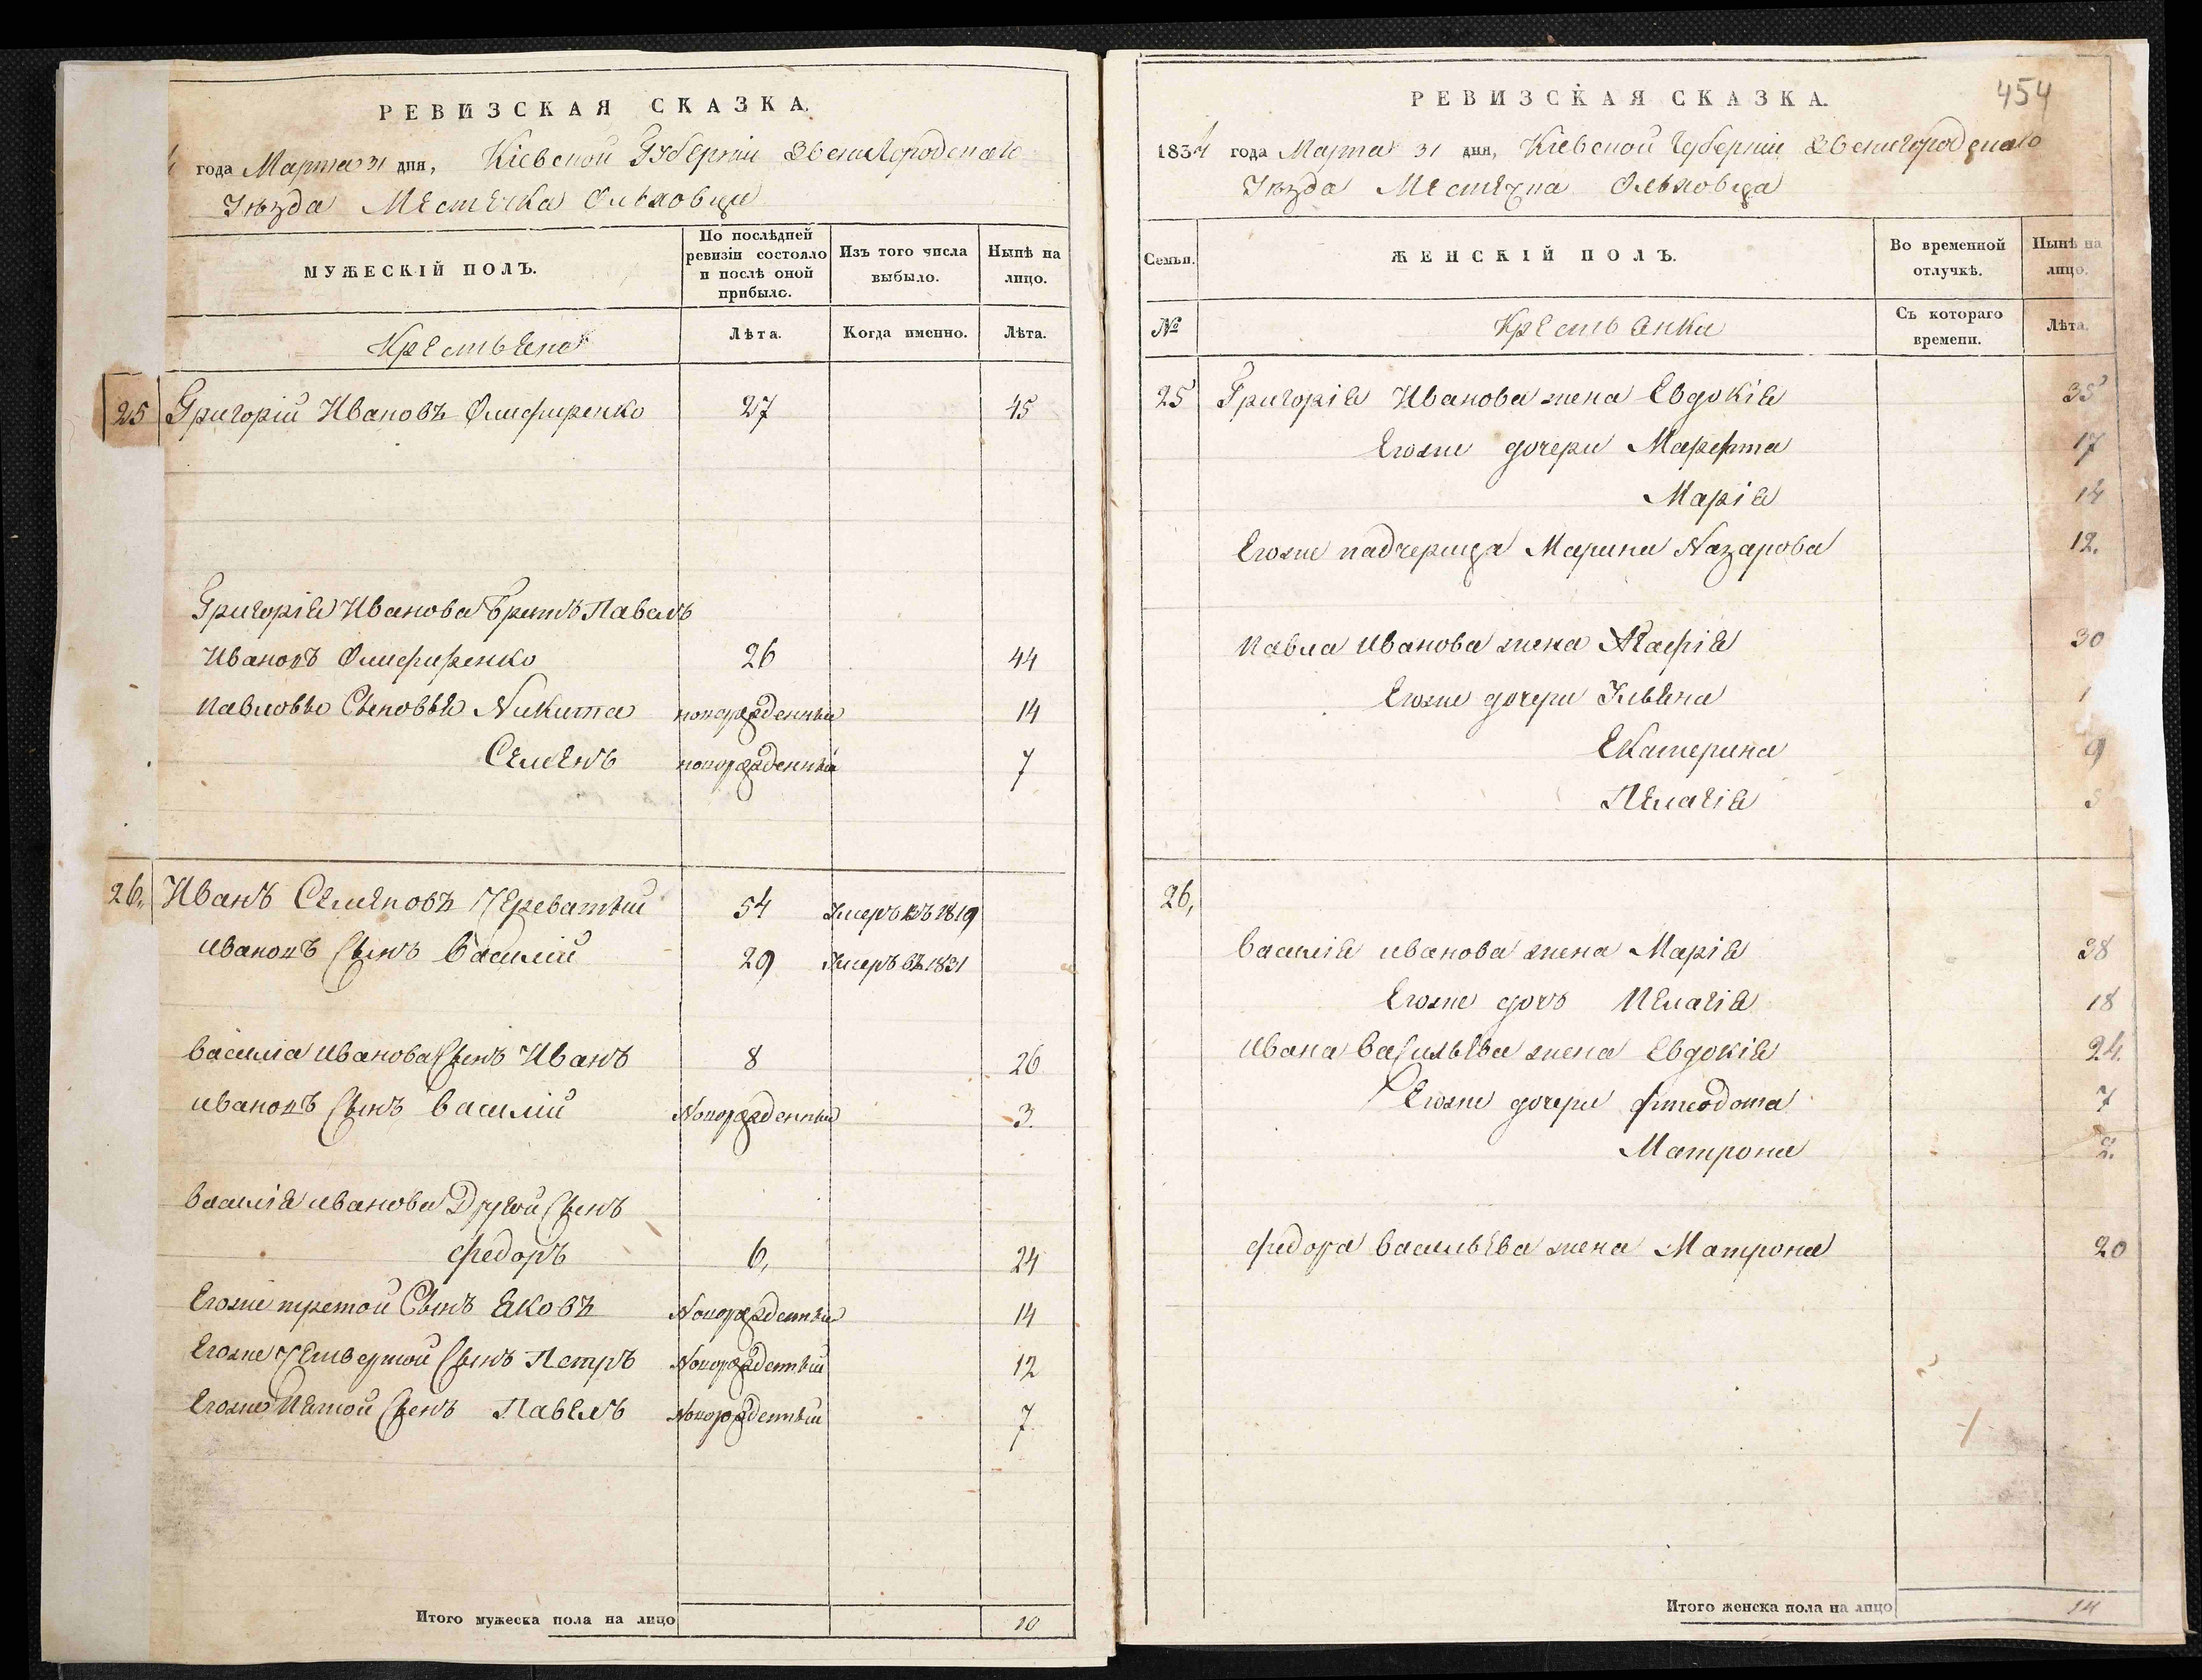 РЕВИЗСКАЯ СКАЗКА.
года Марта 31 дня, Кіевской Губерніи Звенигородскаго
Уѣзда Местечка Ольховца
МУЖЕСКІЙ ПОЛЪ.
По послѣдней ревизіи состояло и послѣ оной прибыло.
Изъ того числа выбыло.
Нынѣ на лицо.
Крестьяне
Лѣта.
Когда именно.
Лѣта.
25 Григорій Ивановъ Олифиренко 27 45
Григорія Иванова Братъ Павелъ
Ивановъ Олифиренко 26 44
Павловы Сыновья Никита новорожденный 14
Семенъ новорожденный 7
26, Иванъ Семеновъ Череватый 54 Умеръ въ 1819
Ивановъ Сынъ Василій 29 Умеръ въ 1831
Василія Иванова Сынъ Иванъ 8 26
Ивановъ Сынъ Василій Новорожденный 3.
Василія Иванова Другой Сынъ
Федоръ 6, 24
Егоже третой Сынъ Яковъ Новорожденный 14
Егоже Четвертой Сынъ Петръ Новорожденный 12
Егоже Пятой Сынъ Павелъ Новорожденный 7
Итого мужеска пола на лицо 10
454
РЕВИЗСКАЯ СКАЗКА.
1834 года Марта 31 дня, Кіевской Губерніи Звенигородскаго
Уѣзда Местечка Ольховца
Семьи.
ЖЕНСКІЙ ПОЛЪ.
Во временной отлучкѣ.
Нынѣ на лицо.
№
Крестьянки
Съ котораго времени.
Лѣта.
25 Григорія Иванова жена Евдокія 35
Егоже дочери Марфта 17
Марія 14
Егоже падчерица Марина Назарова 12.
Павла Иванова жена Агафія 30
Егоже дочери Ульяна 1
Екатерина 9
Пелагія
26,
Василія Иванова жена Марія 38
Егоже дочь Пелагія 18
Ивана Васильева жена Евдокія 24.
Егоже дочери Фтеодота 7
Матрона 2.
Федора Васильева жена Матрона 20
Итого женска пола на лицо 14